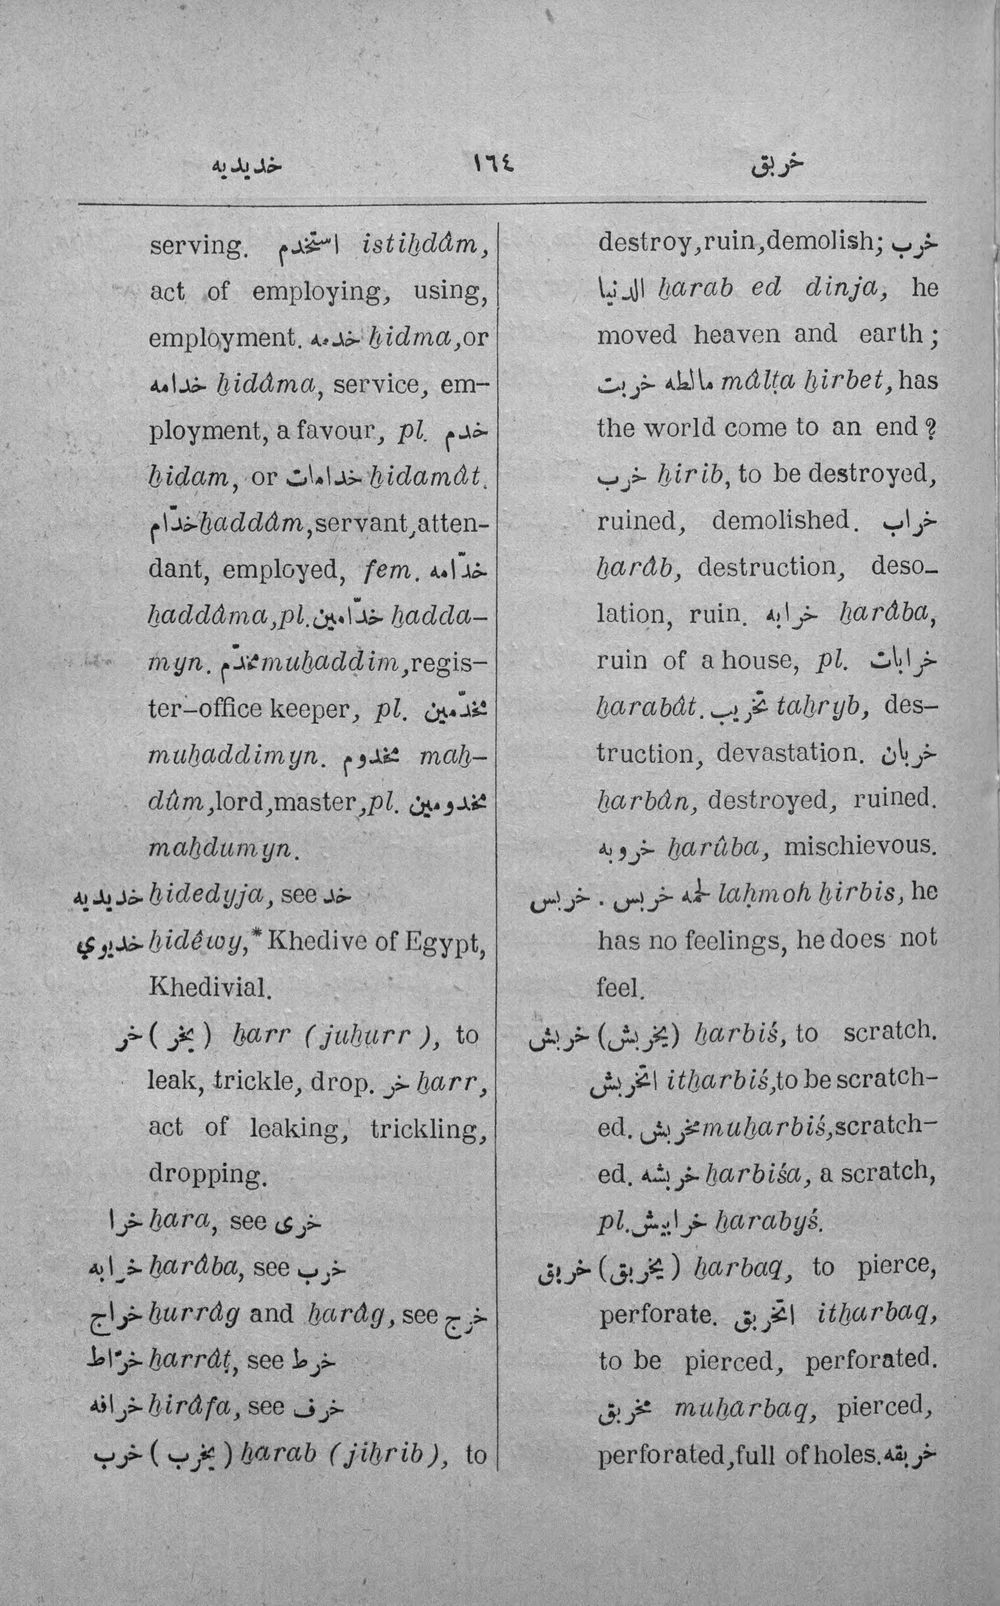 خديديه ١٦٤ خربق
serving. استخدم istiḫdâm,
act of employing, using,
employment. خدمه ḫidma, or
خدامه ḫidâma, service, em-
ployment, a favour, pl. خدم
ḫidam, or خدامات ḫidamât.
خدّام ḫaddâm, servant, atten-
dant, employed, fem. خدّامه
ḫaddâma, pl. خدّامين ḫadda-
myn. مخدّم muḫaddim, regis-
ter-office keeper, pl. مخدّمين
muḫaddimyn. مخدوم maḫ-
dûm, lord, master, pl. مخدومين
maḫdumyn.
خديديه ḫidedyja, see خد
خديوي ḫidêwy,* Khedive of Egypt,
Khedivial.
خر (يخر) ḫarr (juḫurr), to
leak, trickle, drop. خر ḫarr,
act of leaking, trickling,
dropping.
خرا ḫara, see خرى
خرابه ḫarâba, see خرب
خراج ḫurrâg and ḫarâg, see خرج
خرّاط ḫarrâṭ, see خرط
خرافه ḫirâfa, see خرف
خرب (يخرب) ḫarab (jiḫrib), to
destroy, ruin, demolish; خرب
الدنيا ḫarab ed dinja, he
moved heaven and earth;
مالطه خربت mâlṭa ḫirbet, has
the world come to an end?
خرب ḫirib, to be destroyed,
ruined, demolished. خراب
ḫarâb, destruction, deso-
lation, ruin. خرابه ḫarâba,
ruin of a house, pl. خرابات
ḫarabât. تخريب taḫryb, des-
truction, devastation. خربان
ḫarbân, destroyed, ruined.
خروبه ḫarûba, mischievous.
خربس . لحمه خربس laḥmoh ḫirbis, he
has no feelings, he does not
feel.
خربش (يخربش) ḫarbiś, to scratch.
اتخربش itḫarbiś, to be scratch-
ed. مخربش muḫarbiś, scratch-
ed. خربشه ḫarbiśa, a scratch,
pl. خرابيش ḫarabyś.
خربق (يخربق) ḫarbaq, to pierce,
perforate. اتخربق itḫarbaq,
to be pierced, perforated.
مخربق muḫarbaq, pierced,
perforated, full of holes. خربقه